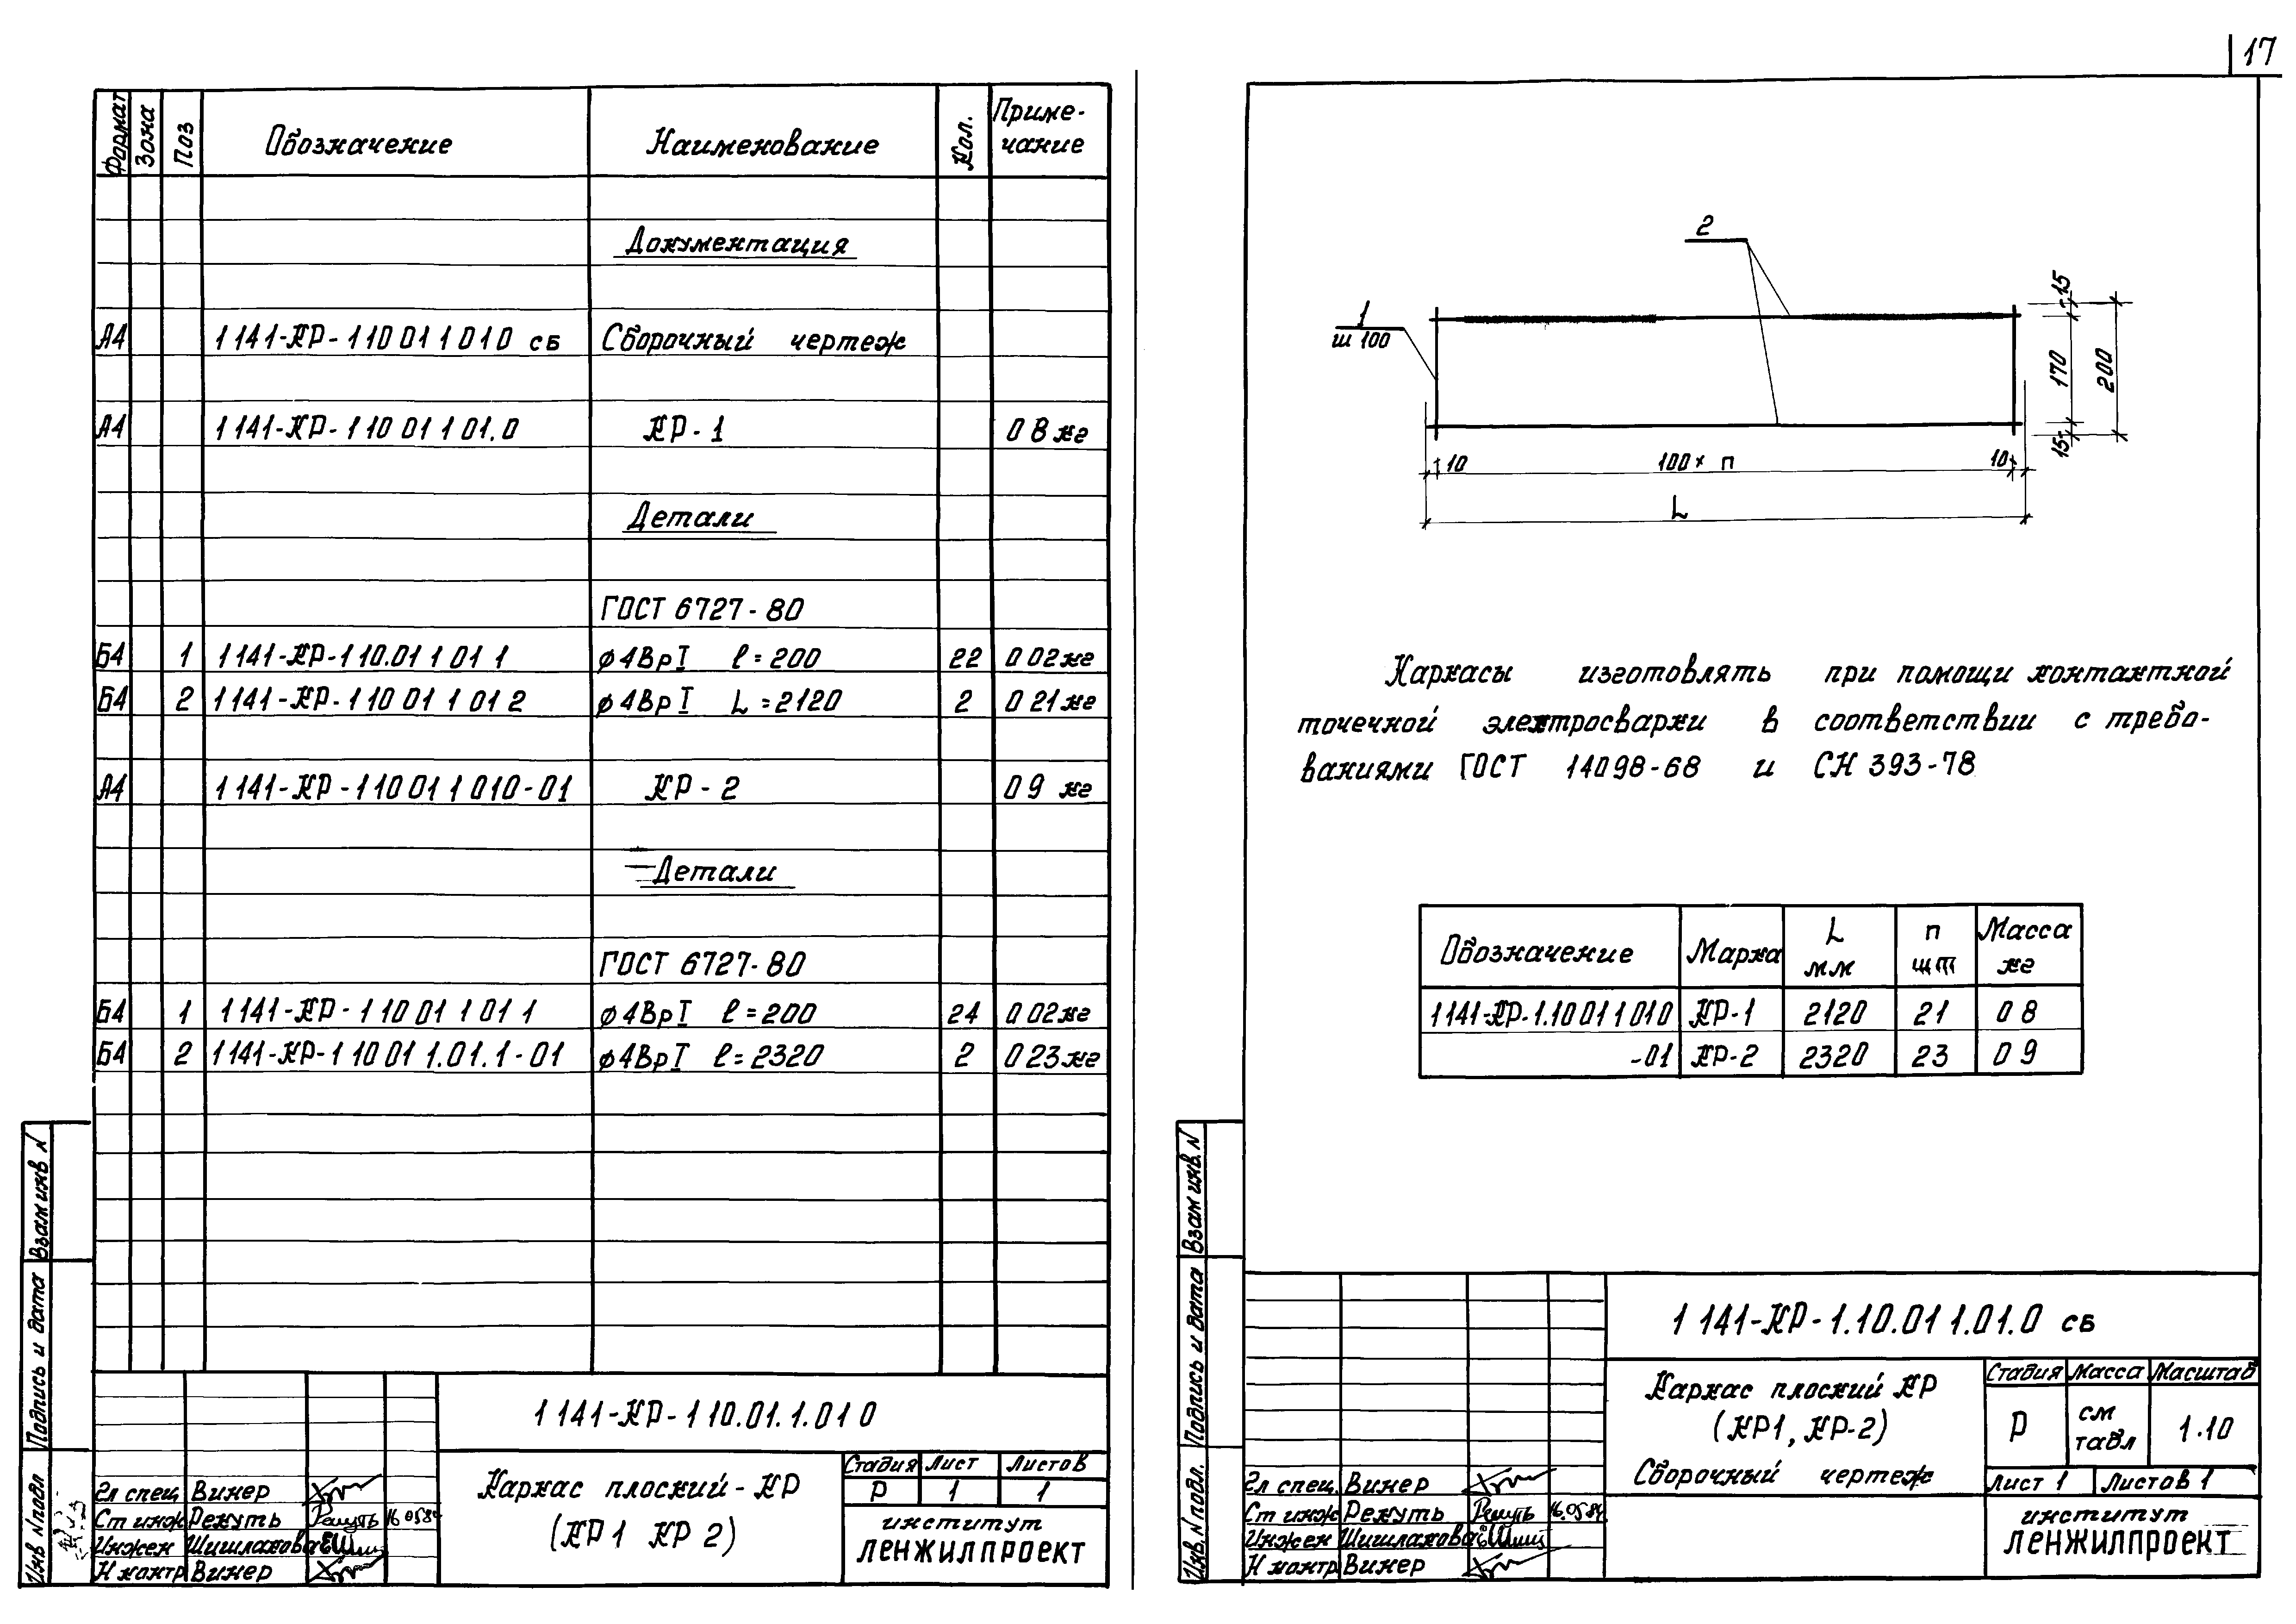 17
Формат Зона Поз Обозначение Наименование Кол. Приме-
чание
Документация
А4 1 141-КР-1 10 01 1 01 0 СБ Сборочный чертеж
А4 1 141-КР-1 10 01 1 01.0 КР-1 0 8 кг
Детали
ГОСТ 6727-80
Б4 1 1 141-КР-1 10.01 1 01 1 ф4ВрI ℓ=200 22 0 02 кг
Б4 2 1 141-КР-1 10 01 1 01 2 ф4ВрI L=2120 2 0 21 кг
А4 1 141-КР-1 10 01 1 01 0-01 КР-2 0 9 кг
Детали
ГОСТ 6727-80
Б4 1 1 141-КР-1 10 01 1 01 1 ф4ВрI ℓ=200 24 0 02 кг
Б4 2 1 141-КР-1 10 01 1.01.1-01 ф4ВрI ℓ=2320 2 0 23 кг
Взам инв. N
Подпись и дата
Инв N подл
1 141-КР-1 10.01.1.01 0
Каркас плоский-КР
(КР1 КР 2)
Стадия Лист Листов
Р 1 1
институт
ЛЕНЖИЛПРОЕКТ
Гл спец Винер
Ст инж Рекуть Рекуть 16 05 84
Инжен Шишлакова
Н контр Винер
2
1
ш 100
15
170
200
15
10 100 × п 10
L
Каркасы изготовлять при помощи контактной
точечной электросварки в соответствии с требо-
ваниями ГОСТ 14098-68 и СН 393-78
Обозначение Марка L
мм п
шт Масса
кг
1 141-КР-1.10 01 1 01 0 КР-1 2120 21 0 8
-01 КР-2 2320 23 0 9
Взам инв. N
Подпись и дата
Инв. N подл.
1 141-КР-1.10.01 1.01.0 СБ
Каркас плоский КР
(КР1, КР-2)
Сборочный чертеж
Стадия Масса Масштаб
Р см
табл 1.10
Лист 1 Листов 1
институт
ЛЕНЖИЛПРОЕКТ
Гл спец. Винер
Ст инж Рекуть Рекуть 16.05 84
Инжен Шишлакова
Н контр Винер